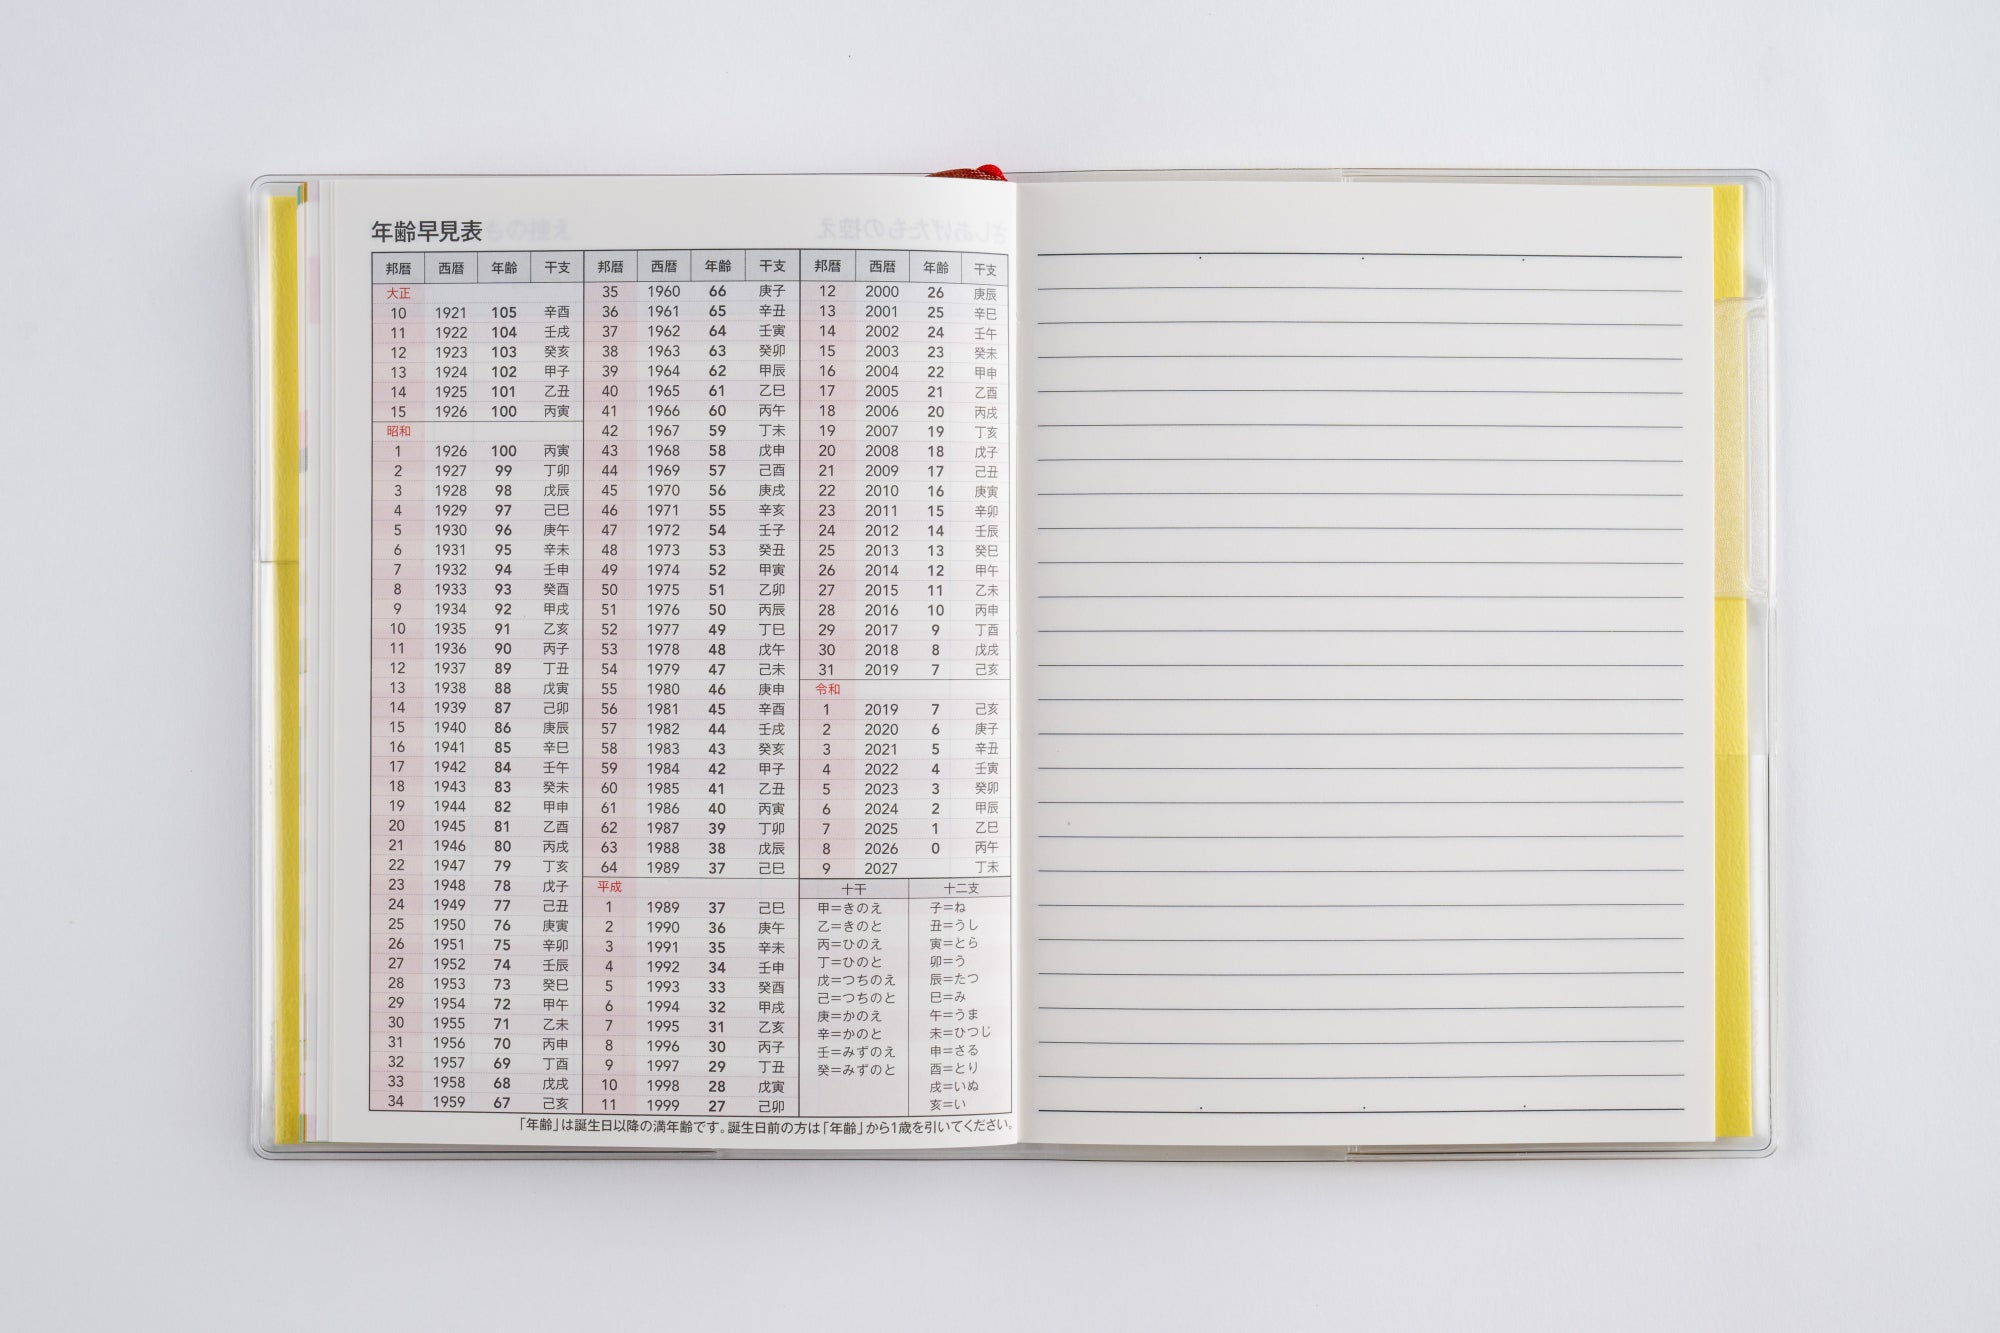 年齢早見表
邦暦 西暦 年齢 干支
大正
10 1921 105 辛酉
11 1922 104 壬戌
12 1923 103 癸亥
13 1924 102 甲子
14 1925 101 乙丑
15 1926 100 丙寅
昭和
1 1926 100 丙寅
2 1927 99 丁卯
3 1928 98 戊辰
4 1929 97 己巳
5 1930 96 庚午
6 1931 95 辛未
7 1932 94 壬申
8 1933 93 癸酉
9 1934 92 甲戌
10 1935 91 乙亥
11 1936 90 丙子
12 1937 89 丁丑
13 1938 88 戊寅
14 1939 87 己卯
15 1940 86 庚辰
16 1941 85 辛巳
17 1942 84 壬午
18 1943 83 癸未
19 1944 82 甲申
20 1945 81 乙酉
21 1946 80 丙戌
22 1947 79 丁亥
23 1948 78 戊子
24 1949 77 己丑
25 1950 76 庚寅
26 1951 75 辛卯
27 1952 74 壬辰
28 1953 73 癸巳
29 1954 72 甲午
30 1955 71 乙未
31 1956 70 丙申
32 1957 69 丁酉
33 1958 68 戊戌
34 1959 67 己亥
邦暦 西暦 年齢 干支
35 1960 66 庚子
36 1961 65 辛丑
37 1962 64 壬寅
38 1963 63 癸卯
39 1964 62 甲辰
40 1965 61 乙巳
41 1966 60 丙午
42 1967 59 丁未
43 1968 58 戊申
44 1969 57 己酉
45 1970 56 庚戌
46 1971 55 辛亥
47 1972 54 壬子
48 1973 53 癸丑
49 1974 52 甲寅
50 1975 51 乙卯
51 1976 50 丙辰
52 1977 49 丁巳
53 1978 48 戊午
54 1979 47 己未
55 1980 46 庚申
56 1981 45 辛酉
57 1982 44 壬戌
58 1983 43 癸亥
59 1984 42 甲子
60 1985 41 乙丑
61 1986 40 丙寅
62 1987 39 丁卯
63 1988 38 戊辰
64 1989 37 己巳
平成
1 1989 37 己巳
2 1990 36 庚午
3 1991 35 辛未
4 1992 34 壬申
5 1993 33 癸酉
6 1994 32 甲戌
7 1995 31 乙亥
8 1996 30 丙子
9 1997 29 丁丑
10 1998 28 戊寅
11 1999 27 己卯
邦暦 西暦 年齢 干支
12 2000 26 庚辰
13 2001 25 辛巳
14 2002 24 壬午
15 2003 23 癸未
16 2004 22 甲申
17 2005 21 乙酉
18 2006 20 丙戌
19 2007 19 丁亥
20 2008 18 戊子
21 2009 17 己丑
22 2010 16 庚寅
23 2011 15 辛卯
24 2012 14 壬辰
25 2013 13 癸巳
26 2014 12 甲午
27 2015 11 乙未
28 2016 10 丙申
29 2017 9 丁酉
30 2018 8 戊戌
31 2019 7 己亥
令和
1 2019 7 己亥
2 2020 6 庚子
3 2021 5 辛丑
4 2022 4 壬寅
5 2023 3 癸卯
6 2024 2 甲辰
7 2025 1 乙巳
8 2026 0 丙午
9 2027 丁未
十干
甲＝きのえ
乙＝きのと
丙＝ひのえ
丁＝ひのと
戊＝つちのえ
己＝つちのと
庚＝かのえ
辛＝かのと
壬＝みずのえ
癸＝みずのと
十二支
子＝ね
丑＝うし
寅＝とら
卯＝う
辰＝たつ
巳＝み
午＝うま
未＝ひつじ
申＝さる
酉＝とり
戌＝いぬ
亥＝い
「年齢」は誕生日以降の満年齢です。誕生日前の方は「年齢」から1歳を引いてください。